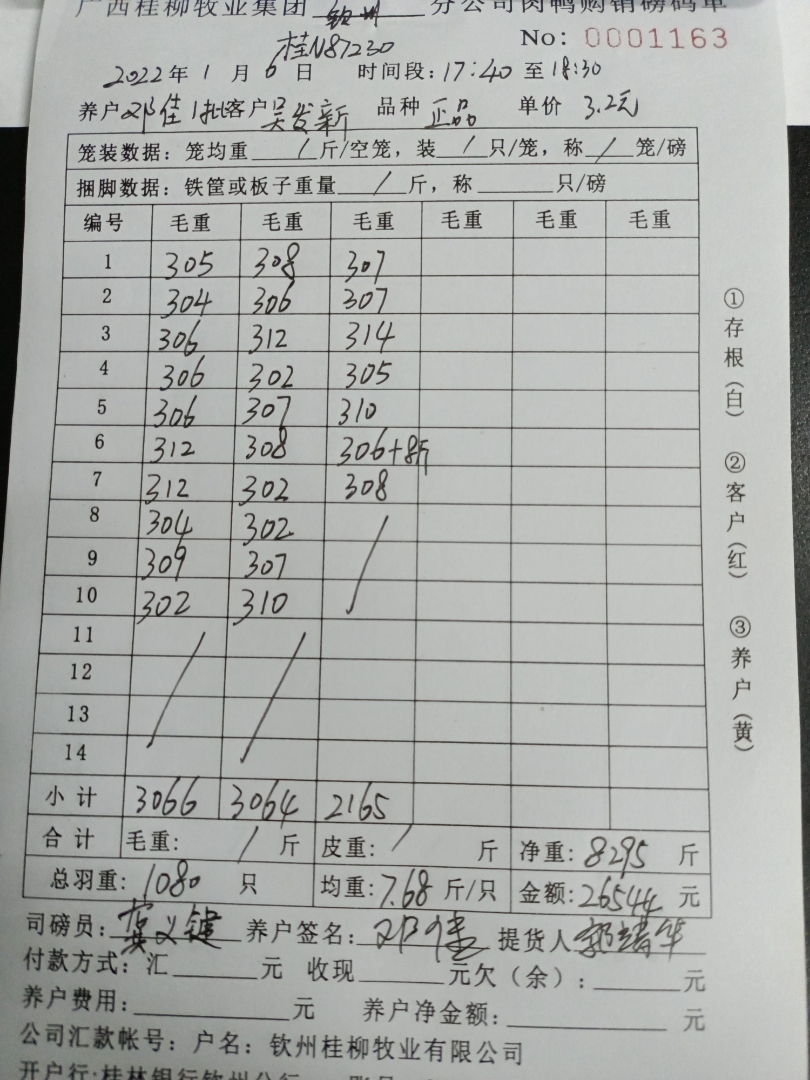 广西桂柳牧业集团 钦州 分公司肉鸭购销磅码单
桂N87230 No: 0001163
2022年 1 月 6 日 时间段: 17:40 至 18:30
养户 邓佳 1批 客户 吴发新 品种 正品 单价 3.2元
笼装数据: 笼均重 / 斤/空笼, 装 / 只/笼, 称 / 笼/磅
捆脚数据: 铁筐或板子重量 / 斤, 称 只/磅
编号 毛重 毛重 毛重 毛重 毛重 毛重
1 305 308 307
2 304 306 307
3 306 312 314
4 306 302 305
5 306 307 310
6 312 308 306+8斤
7 312 302 308
8 304 302 /
9 309 307
10 302 310
11 / /
12
13
14
小计 3066 3064 2165
合计 毛重: / 斤 皮重: / 斤 净重: 8295 斤
总羽重: 1080 只 均重: 7.68 斤/只 金额: 26544 元
司磅员: 龚义键 养户签名: 邓佳 提货人 郭靖华
付款方式: 汇 元 收现 元欠(余): 元
养户费用: 元 养户净金额: 元
公司汇款帐号: 户名: 钦州桂柳牧业有限公司
开户行:桂林银行钦州分行
①存根(白) ②客户(红) ③养户(黄)